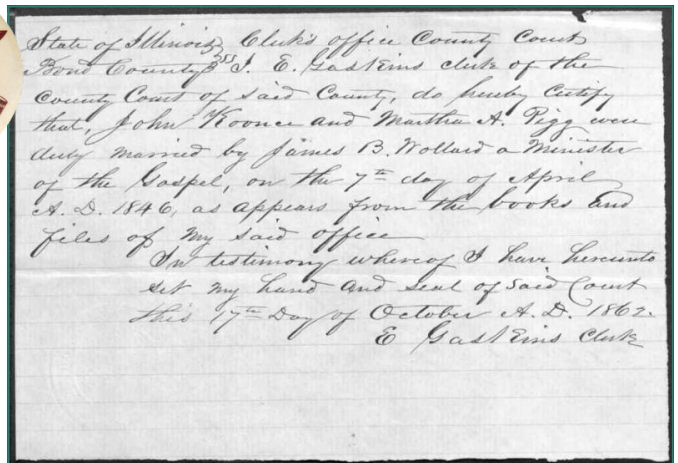 State of Illinois } Clerk's office County Court
Bond County } SS I. E. Gaskins clerk of the
County Court of said County, do hereby Certify
that, John Koonce and Martha A. Pigg were
duly married by James B. Wollard a Minister
of the Gospel, on the 7th day of April
A. D. 1846, as appears from the books and
files of my said office
In testimony whereof I have hereunto
set my hand and seal of said Court
this 17th Day of October A. D. 1862.
E Gaskins Clerk